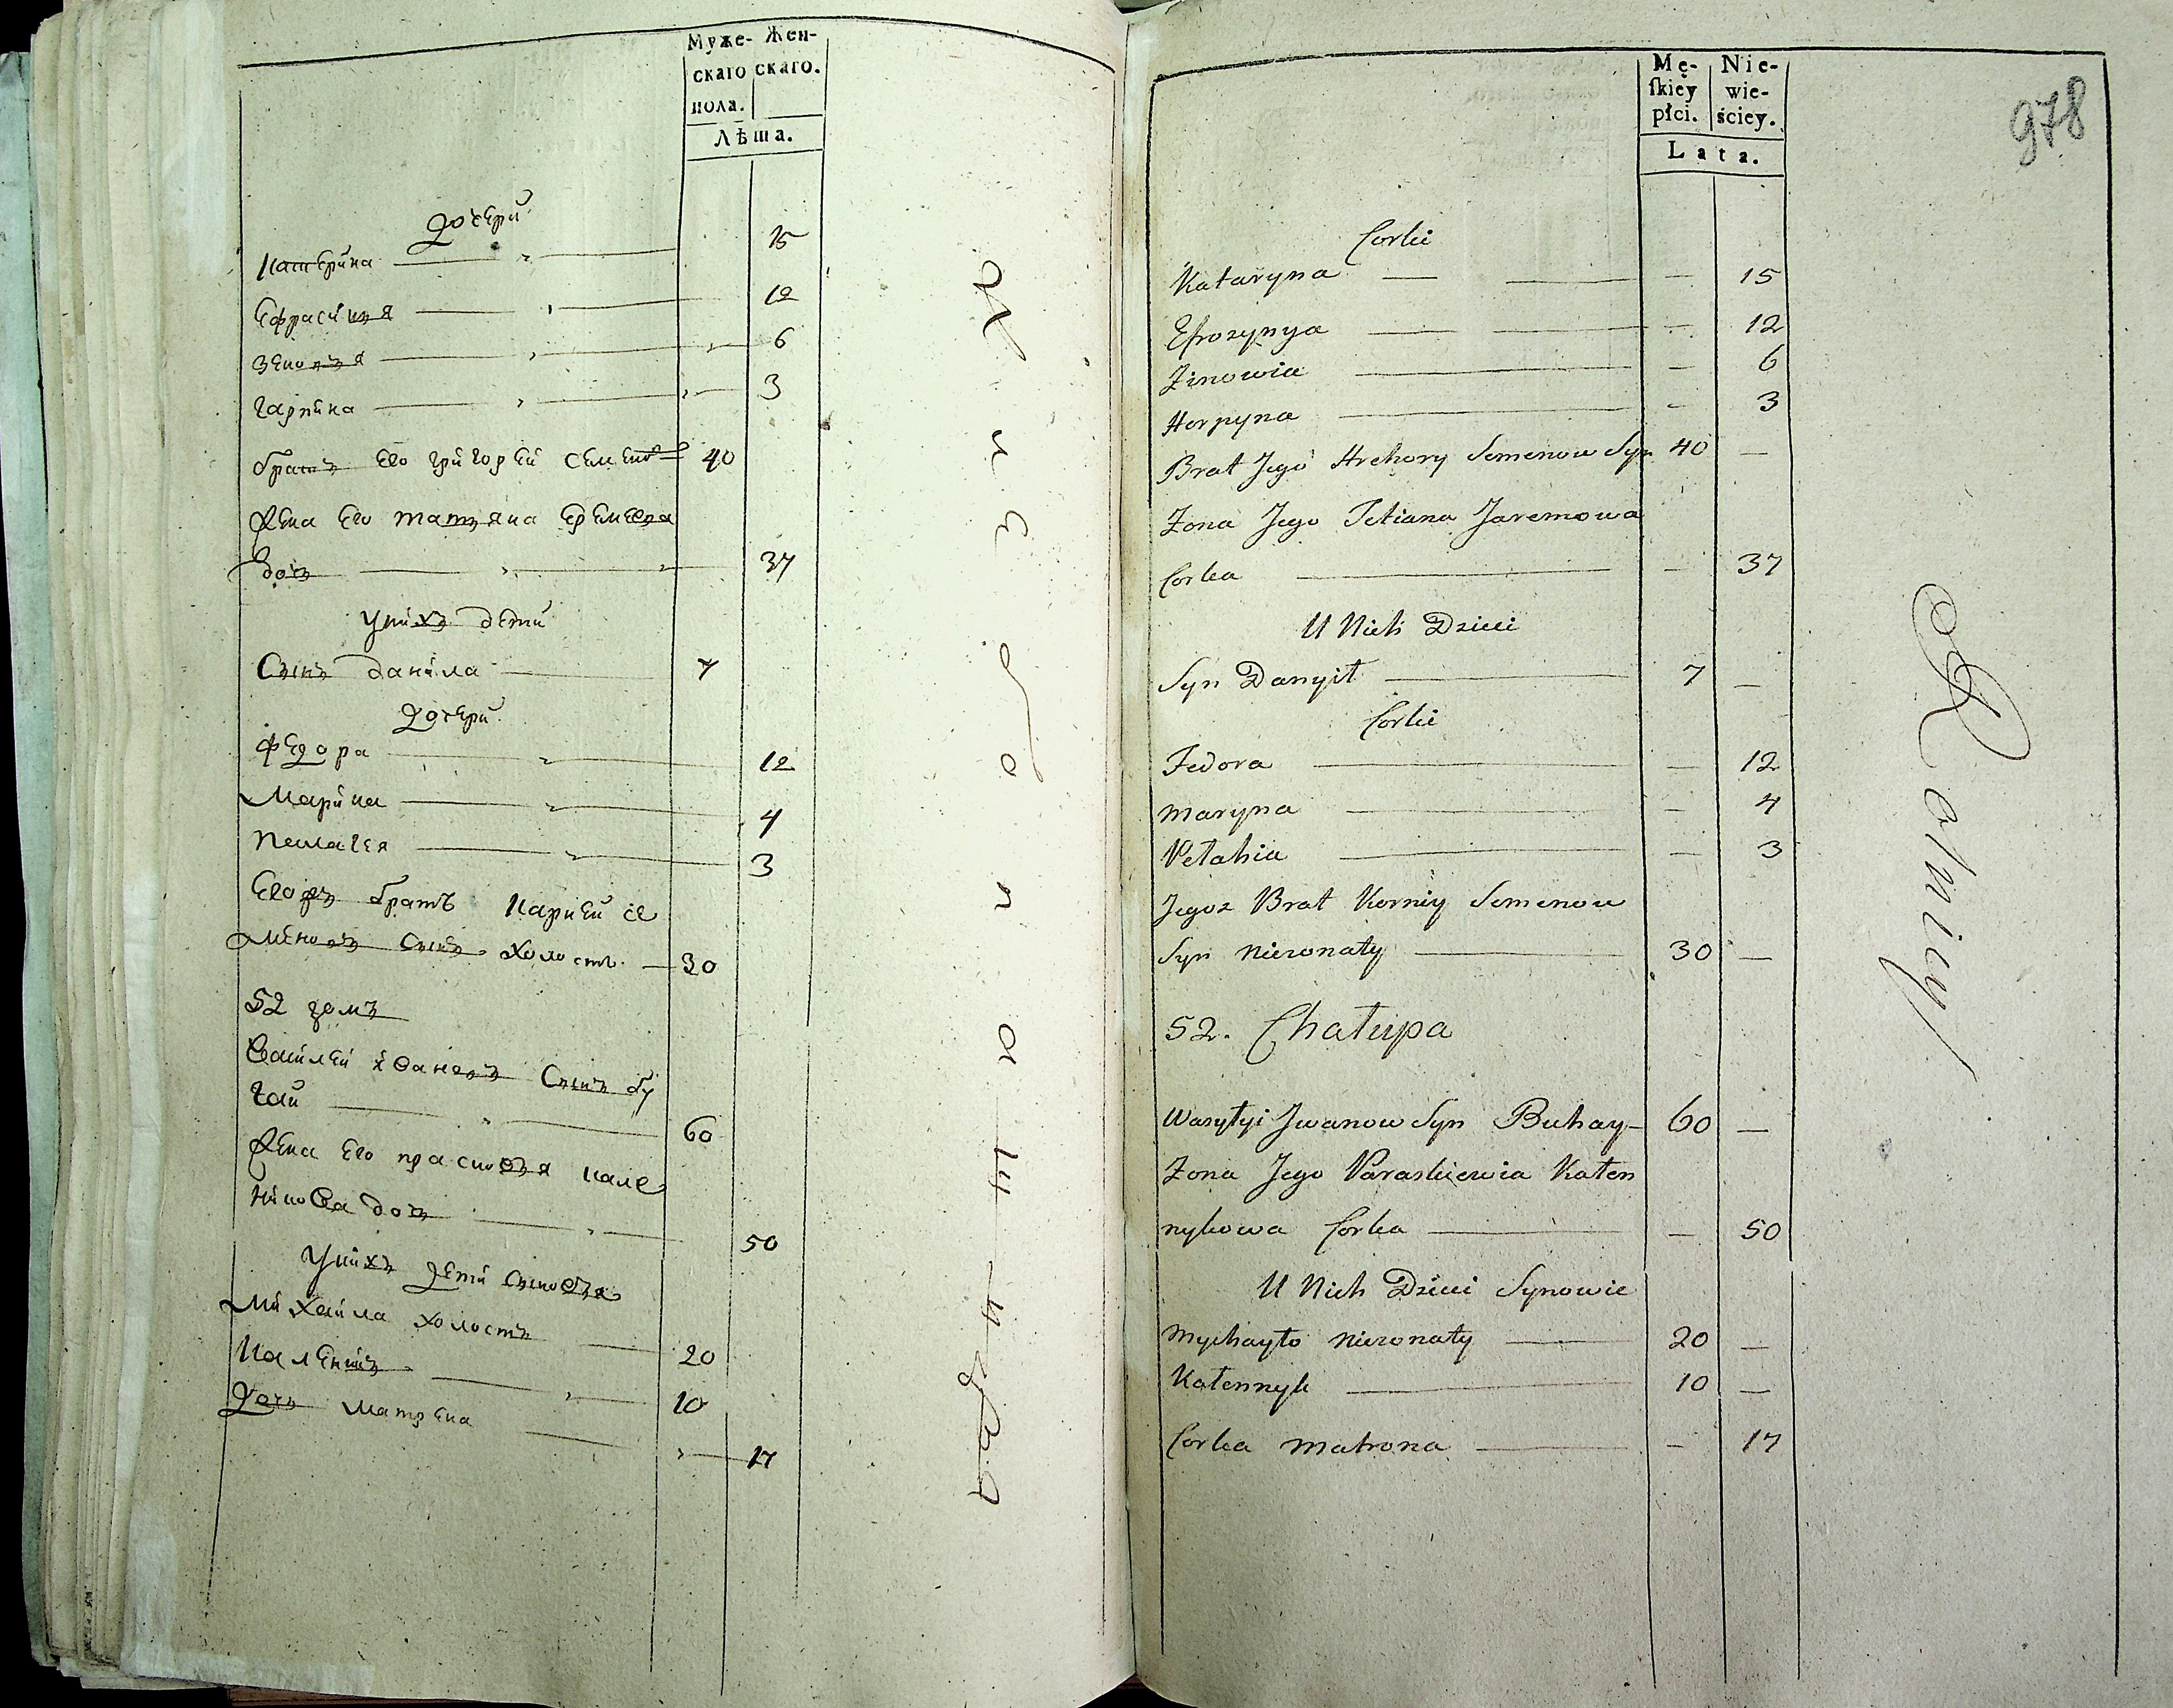 Муже- Жен-
скаго скаго.
пола.
Лѣта.
дочери
катерина 15
Ефрасиня 12
Зеновія 6
Гарпина 3
братъ Его григорей Семеновъ 40
жена Его татяна Еремеева
дочь 37
у нихъ дети
Сынъ данила 7
дочери
федора 12
марина 4
пелагея 3
Егожъ братъ карней се
меновъ Сынъ холостъ 30
52 домъ
Василей Ивановъ Сынъ бу
гай 60
жена Его прасковя кале
никова дочь 50
у нихъ дети Сыновя
михайла холостъ 20
каленикъ 10
дочь матрена 17
Mę- Nie-
ſkiey wie-
płci. ściey.
Lata.
978
Corki
Kataryna — 15
Efrozynya — 12
Zinowia — 6
Horpyna — 3
Brat Jego Hrehory Semenow Syn 40 —
Zona Jego Tetiana Jaremowa
Corka — 37
U Nich Dzieci
Syn Danyił 7 —
Corki
Fedora — 12
Maryna — 4
Pełahia — 3
Jegoz Brat Korniy Semenow
Syn Niezonaty 30 —
52. Chałupa
Wasyłyi Jwanow Syn Buhay 60 —
Zona Jego Paraskiewia Kałen
nykowa Corka — 50
U Nich Dzieci Synowie
Mychayło Niezonaty 20 —
Kałennyk 10 —
Corka Matrona — 17